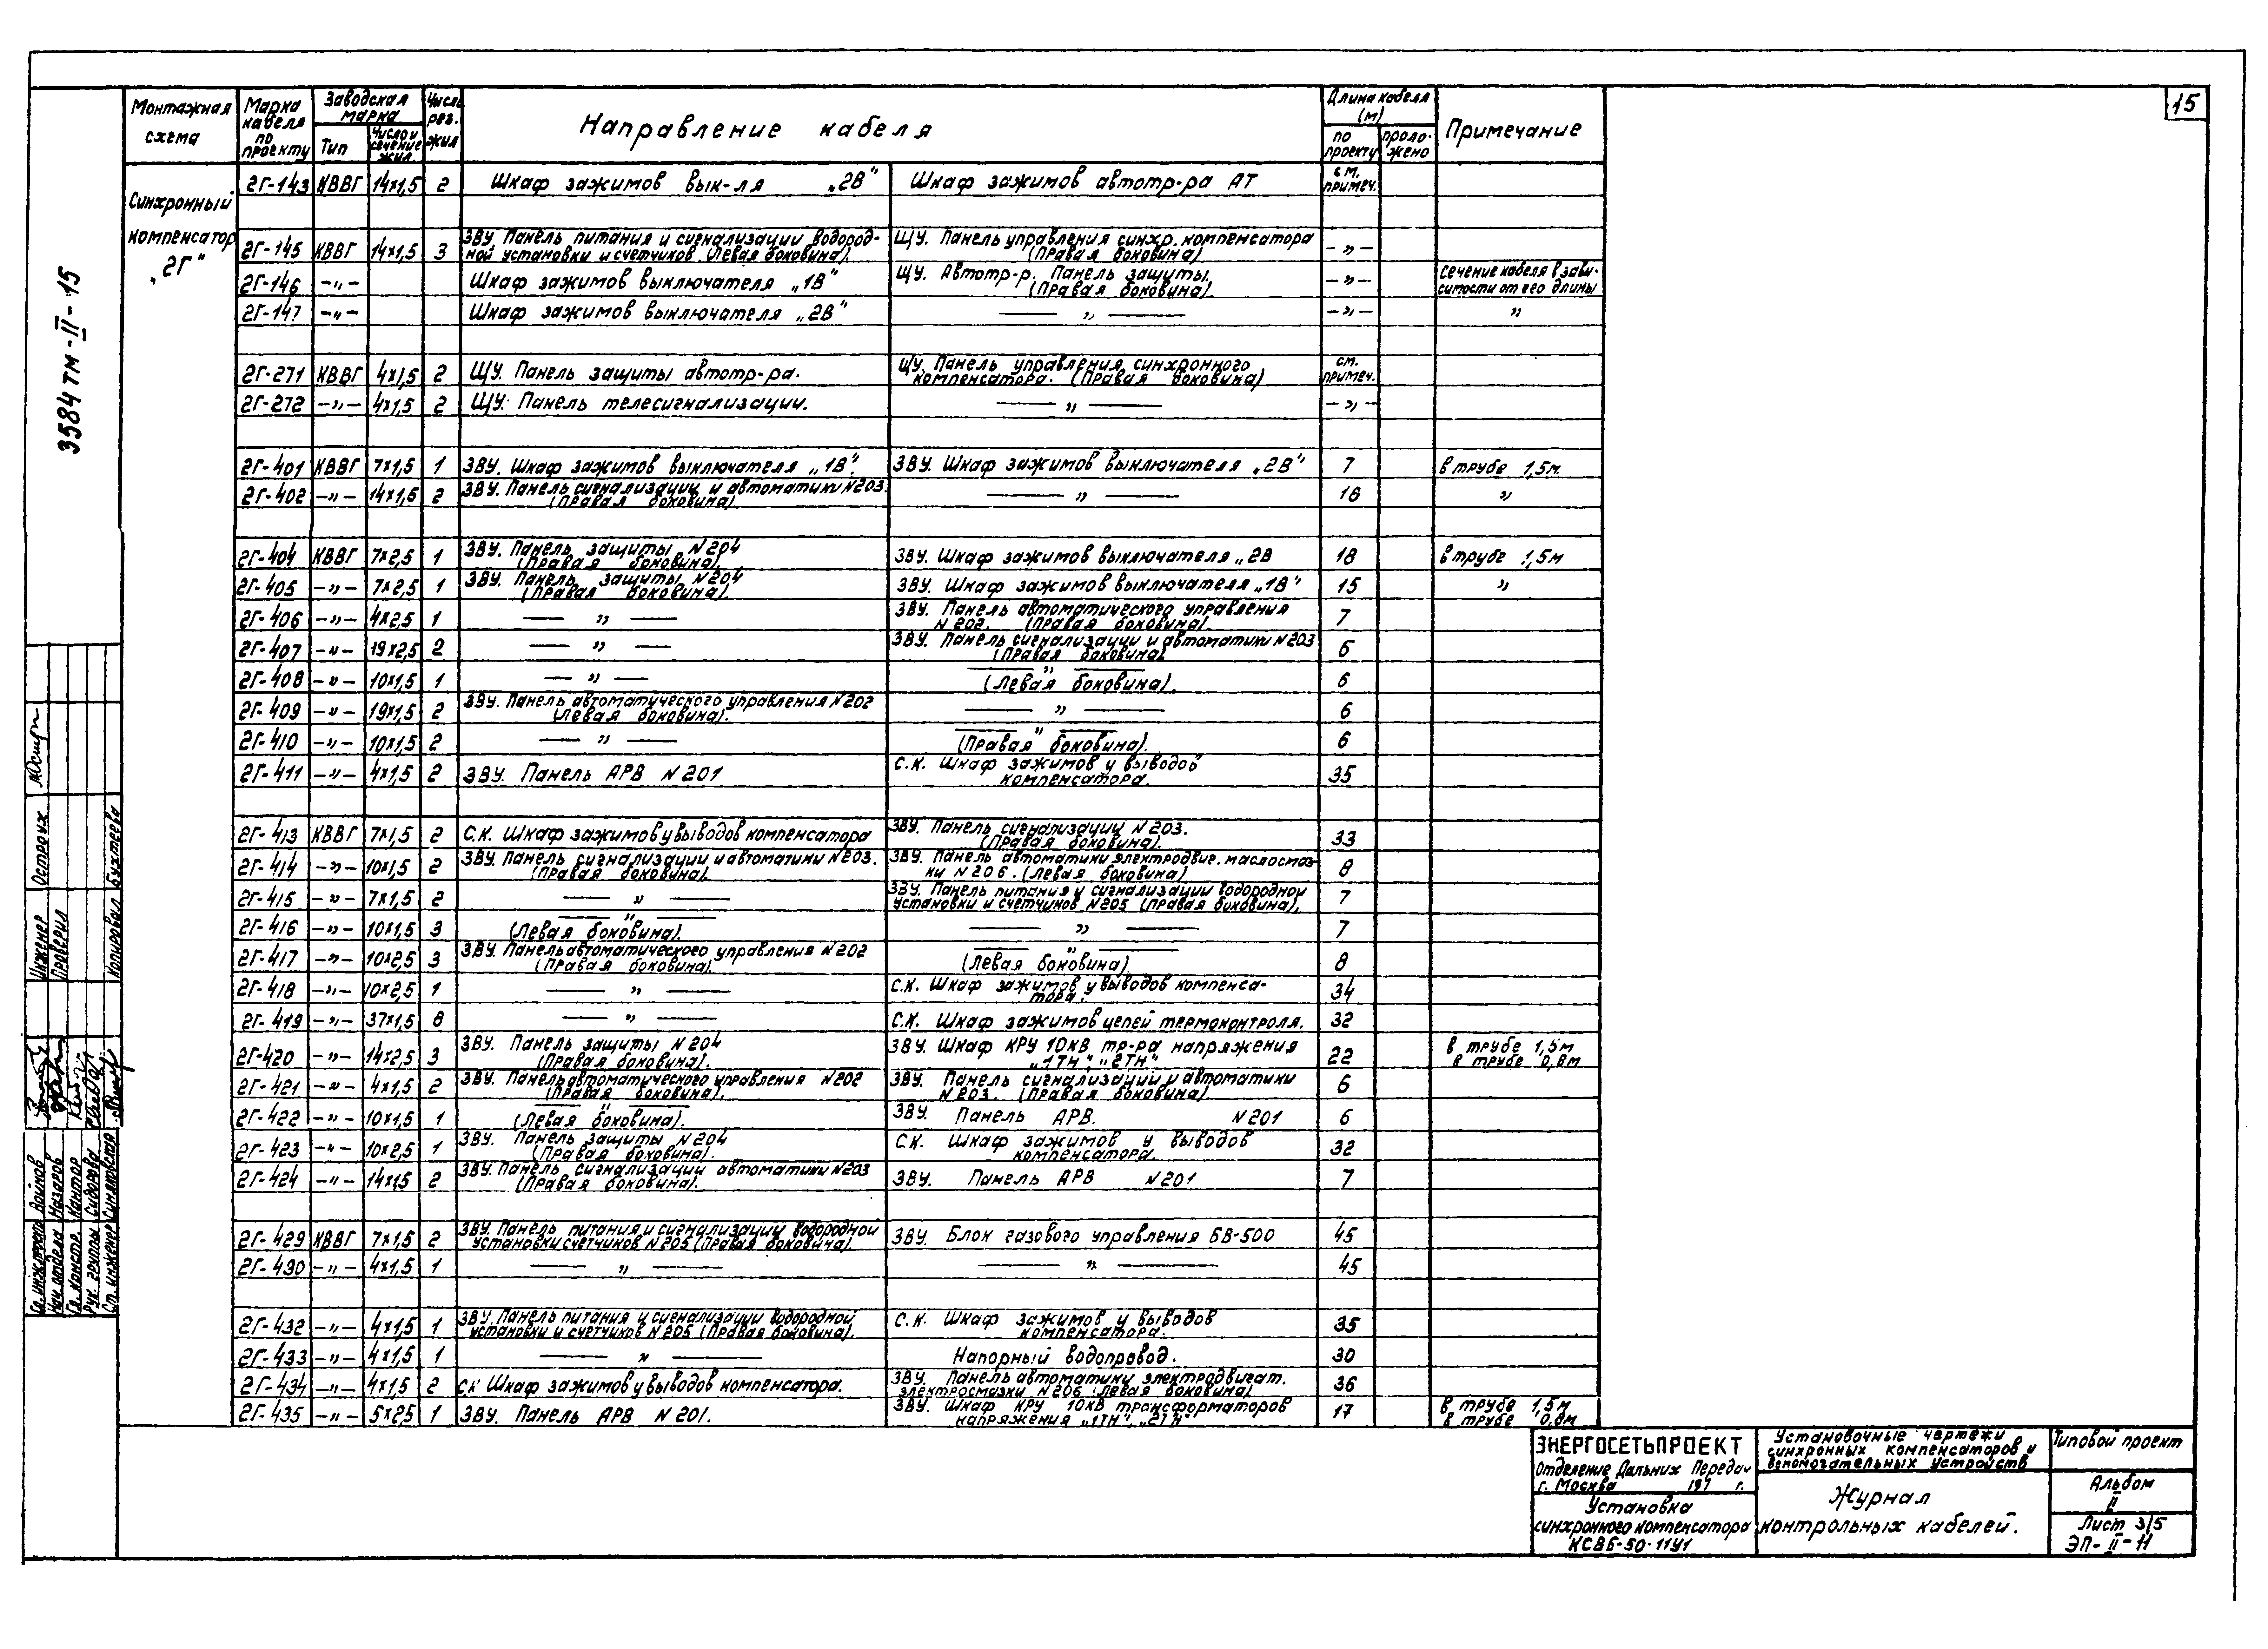 15
Монтажная схема | Марка кабеля по проекту | Заводская марка | Тип | Число и сечение жил | Число рез. жил | Направление кабеля | Длина кабеля (м) | по проекту | проложено | Примечание
Синхронный компенсатор „2Г“
2Г-143 КВВГ 14х1,5 2 Шкаф зажимов вык-ля „2В“ Шкаф зажимов автотр-ра АТ см. примеч.
2Г-145 КВВГ 14х1,5 3 ЗВУ. Панель питания и сигнализации водород-
ной установки и счетчиков. (Левая боковина). ЩУ. Панель управления синхр. компенсатора
(Правая боковина) -„-
2Г-146 -„- Шкаф зажимов выключателя „1В“ ЩУ. Автотр-р. Панель защиты.
(Правая боковина). -„- сечение кабеля в зави-
симости от его длины
2Г-147 -„- Шкаф зажимов выключателя „2В“ — „ — -„- „
2Г-271 КВВГ 4х1,5 2 ЩУ. Панель защиты автотр-ра. ЩУ. Панель управления синхронного
компенсатора. (Правая боковина) см. примеч.
2Г-272 -„- 4х1,5 2 ЩУ. Панель телесигнализации. — „ — -„-
2Г-401 КВВГ 7х1,5 1 ЗВУ. Шкаф зажимов выключателя „1В“. ЗВУ. Шкаф зажимов выключателя „2В“ 7 в трубе 1,5м
2Г-402 -„- 14х1,5 2 ЗВУ. Панель сигнализации и автоматики N203.
(Правая боковина) — „ — 18 „
2Г-404 КВВГ 7х2,5 1 ЗВУ. Панель защиты N204
(Правая боковина). ЗВУ. Шкаф зажимов выключателя „2В 18 в трубе 1,5м
2Г-405 -„- 7х2,5 1 ЗВУ. Панель защиты N204
(Правая боковина). ЗВУ. Шкаф зажимов выключателя „1В“ 15 „
2Г-406 -„- 4х2,5 1 — „ — ЗВУ. Панель автоматического управления
N202. (Правая боковина). 7
2Г-407 -„- 19х2,5 2 — „ — ЗВУ. Панель сигнализации и автоматики N203
(Правая боковина). 6
2Г-408 -„- 10х1,5 1 — „ — — „ —
(Левая боковина). 6
2Г-409 -„- 19х1,5 2 ЗВУ. Панель автоматического управления N202
(Левая боковина). — „ — 6
2Г-410 -„- 10х1,5 2 — „ — — „ —
(Правая боковина). 6
2Г-411 -„- 4х1,5 2 ЗВУ. Панель АРВ N201 С.К. Шкаф зажимов у выводов
компенсатора. 35
2Г-413 КВВГ 7х1,5 2 С.К. Шкаф зажимов у выводов компенсатора ЗВУ. Панель сигнализации N203.
(Правая боковина). 33
2Г-414 -„- 10х1,5 2 ЗВУ. Панель сигнализации и автоматики N203.
(Правая боковина). ЗВУ. Панель автоматики электродвиг. маслосмаз-
ки N206. (Левая боковина) 8
2Г-415 -„- 7х1,5 2 — „ — ЗВУ. Панель питания и сигнализации водородной
установки и счетчиков N205 (Правая боковина). 7
2Г-416 -„- 10х1,5 3 — „ —
(Левая боковина). — „ — 7
2Г-417 -„- 10х2,5 3 ЗВУ. Панель автоматического управления N202
(Правая боковина). — „ —
(Левая боковина) 8
2Г-418 -„- 10х2,5 1 — „ — С.К. Шкаф зажимов у выводов компенса-
тора. 34
2Г-419 -„- 37х1,5 8 — „ — С.К. Шкаф зажимов цепей термоконтроля. 32
2Г-420 -„- 14х2,5 3 ЗВУ. Панель защиты N204
(Правая боковина). ЗВУ. Шкаф КРУ 10кВ тр-ра напряжения
„1ТН“, „2ТН“ 22 в трубе 1,5м
в трубе 0,8м
2Г-421 -„- 4х1,5 2 ЗВУ. Панель автоматического управления N202
(Правая боковина). ЗВУ. Панель сигнализации и автоматики
N203. (Правая боковина). 6
2Г-422 -„- 10х1,5 1 — „ —
(Левая боковина). ЗВУ. Панель АРВ. N201 6
2Г-423 -„- 10х2,5 1 ЗВУ. Панель защиты N204
(Правая боковина). С.К. Шкаф зажимов у выводов
компенсатора. 32
2Г-424 -„- 14х1,5 2 ЗВУ. Панель сигнализации автоматики N203
(Правая боковина). ЗВУ. Панель АРВ N201 7
2Г-429 КВВГ 7х1,5 2 ЗВУ. Панель питания и сигнализации водородной
установки счетчиков N205 (Правая боковина). ЗВУ. Блок газового управления БВ-500 45
2Г-430 -„- 4х1,5 1 — „ — — „ — 45
2Г-432 -„- 4х1,5 1 ЗВУ. Панель питания и сигнализации водородной
установки и счетчиков N205 (Правая боковина). С.К. Шкаф зажимов у выводов
компенсатора. 35
2Г-433 -„- 4х1,5 1 — „ — Напорный водопровод. 30
2Г-434 -„- 4х1,5 2 СК Шкаф зажимов у выводов компенсатора. ЗВУ. Панель автоматики электродвигат.
электросмазки N206 (Левая боковина) 36
2Г-435 -„- 5х2,5 1 ЗВУ. Панель АРВ N201. ЗВУ. Шкаф КРУ 10кВ трансформаторов
напряжения „1ТН“, „2ТН“ 17 в трубе 1,5м
в трубе 0,8м
3584тм-II-15
Инженер Остроух
Проверил
Копировал Бухтеева
Гл. инж. проекта Войнов
Нач. отдела Назаров
Гл. констр. Кантор
Рук. группы Сидорова
Ст. инженер Синяковская
ЭНЕРГОСЕТЬПРОЕКТ
Отделение Дальних Передач
г. Москва 197 г.
Установка
синхронного компенсатора
КСВБ-50-11У1
Установочные чертежи
синхронных компенсаторов и
вспомогательных устройств
Журнал
контрольных кабелей.
Типовой проект
Альбом
II
Лист 3/5
ЭП-II-11